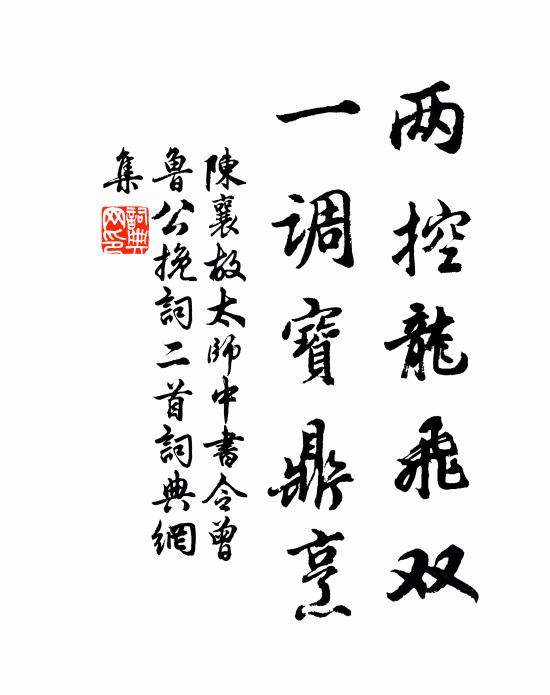 两控龍飛双
一调寶鼎烹
陳襄故太師中書令曾
魯公挽詞二首詞典網
集
詞典网印